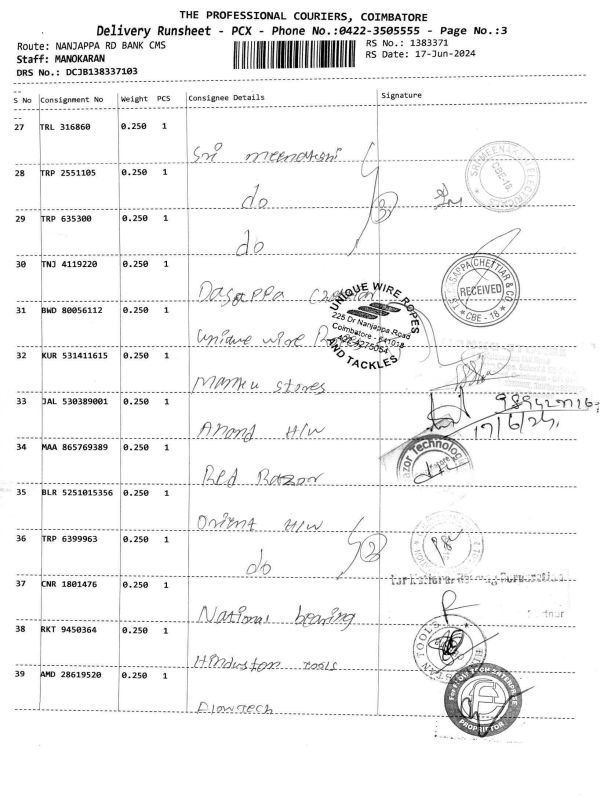 THE PROFESSIONAL COURIERS, COIMBATORE
Delivery Runsheet - PCX - Phone No.:0422-3505555 - Page No.:3
Route: NANJAPPA RD BANK CMS RS No.: 1383371
Staff: MANOKARAN RS Date: 17-Jun-2024
DRS No.: DCJB138337103
S No Consignment No Weight PCS Consignee Details Signature
27 TRL 316860 0.250 1
Sri meenakshi
28 TRP 2551105 0.250 1
do
29 TRP 635300 0.250 1
do
3
30 TNJ 4119220 0.250 1
Dasappa
RECEIVED
CBE - 18
31 BWD 80056112 0.250 1
unique wire
UNIQUE WIRE ROPES
225 Dr Nanjappa Road
Coimbatore - 641018
AND TACKLES
32 KUR 531411615 0.250 1
stores
33 JAL 530389001 0.250 1
Anand H/W
17/6/24
34 MAA 865769389 0.250 1
Red Razor
35 BLR 5251015356 0.250 1
Orient H/W
36 TRP 6399963 0.250 1
do
2
37 CNR 1801476 0.250 1
National bearing
38 RKT 9450364 0.250 1
Hindustan tools
39 AMD 28619520 0.250 1
Flowtech
PROPRIETOR